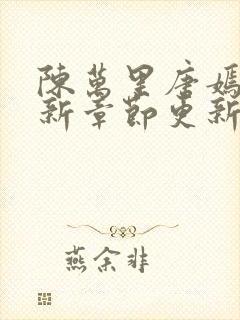 陳萬里唐嫣
新章節更新
燕余非